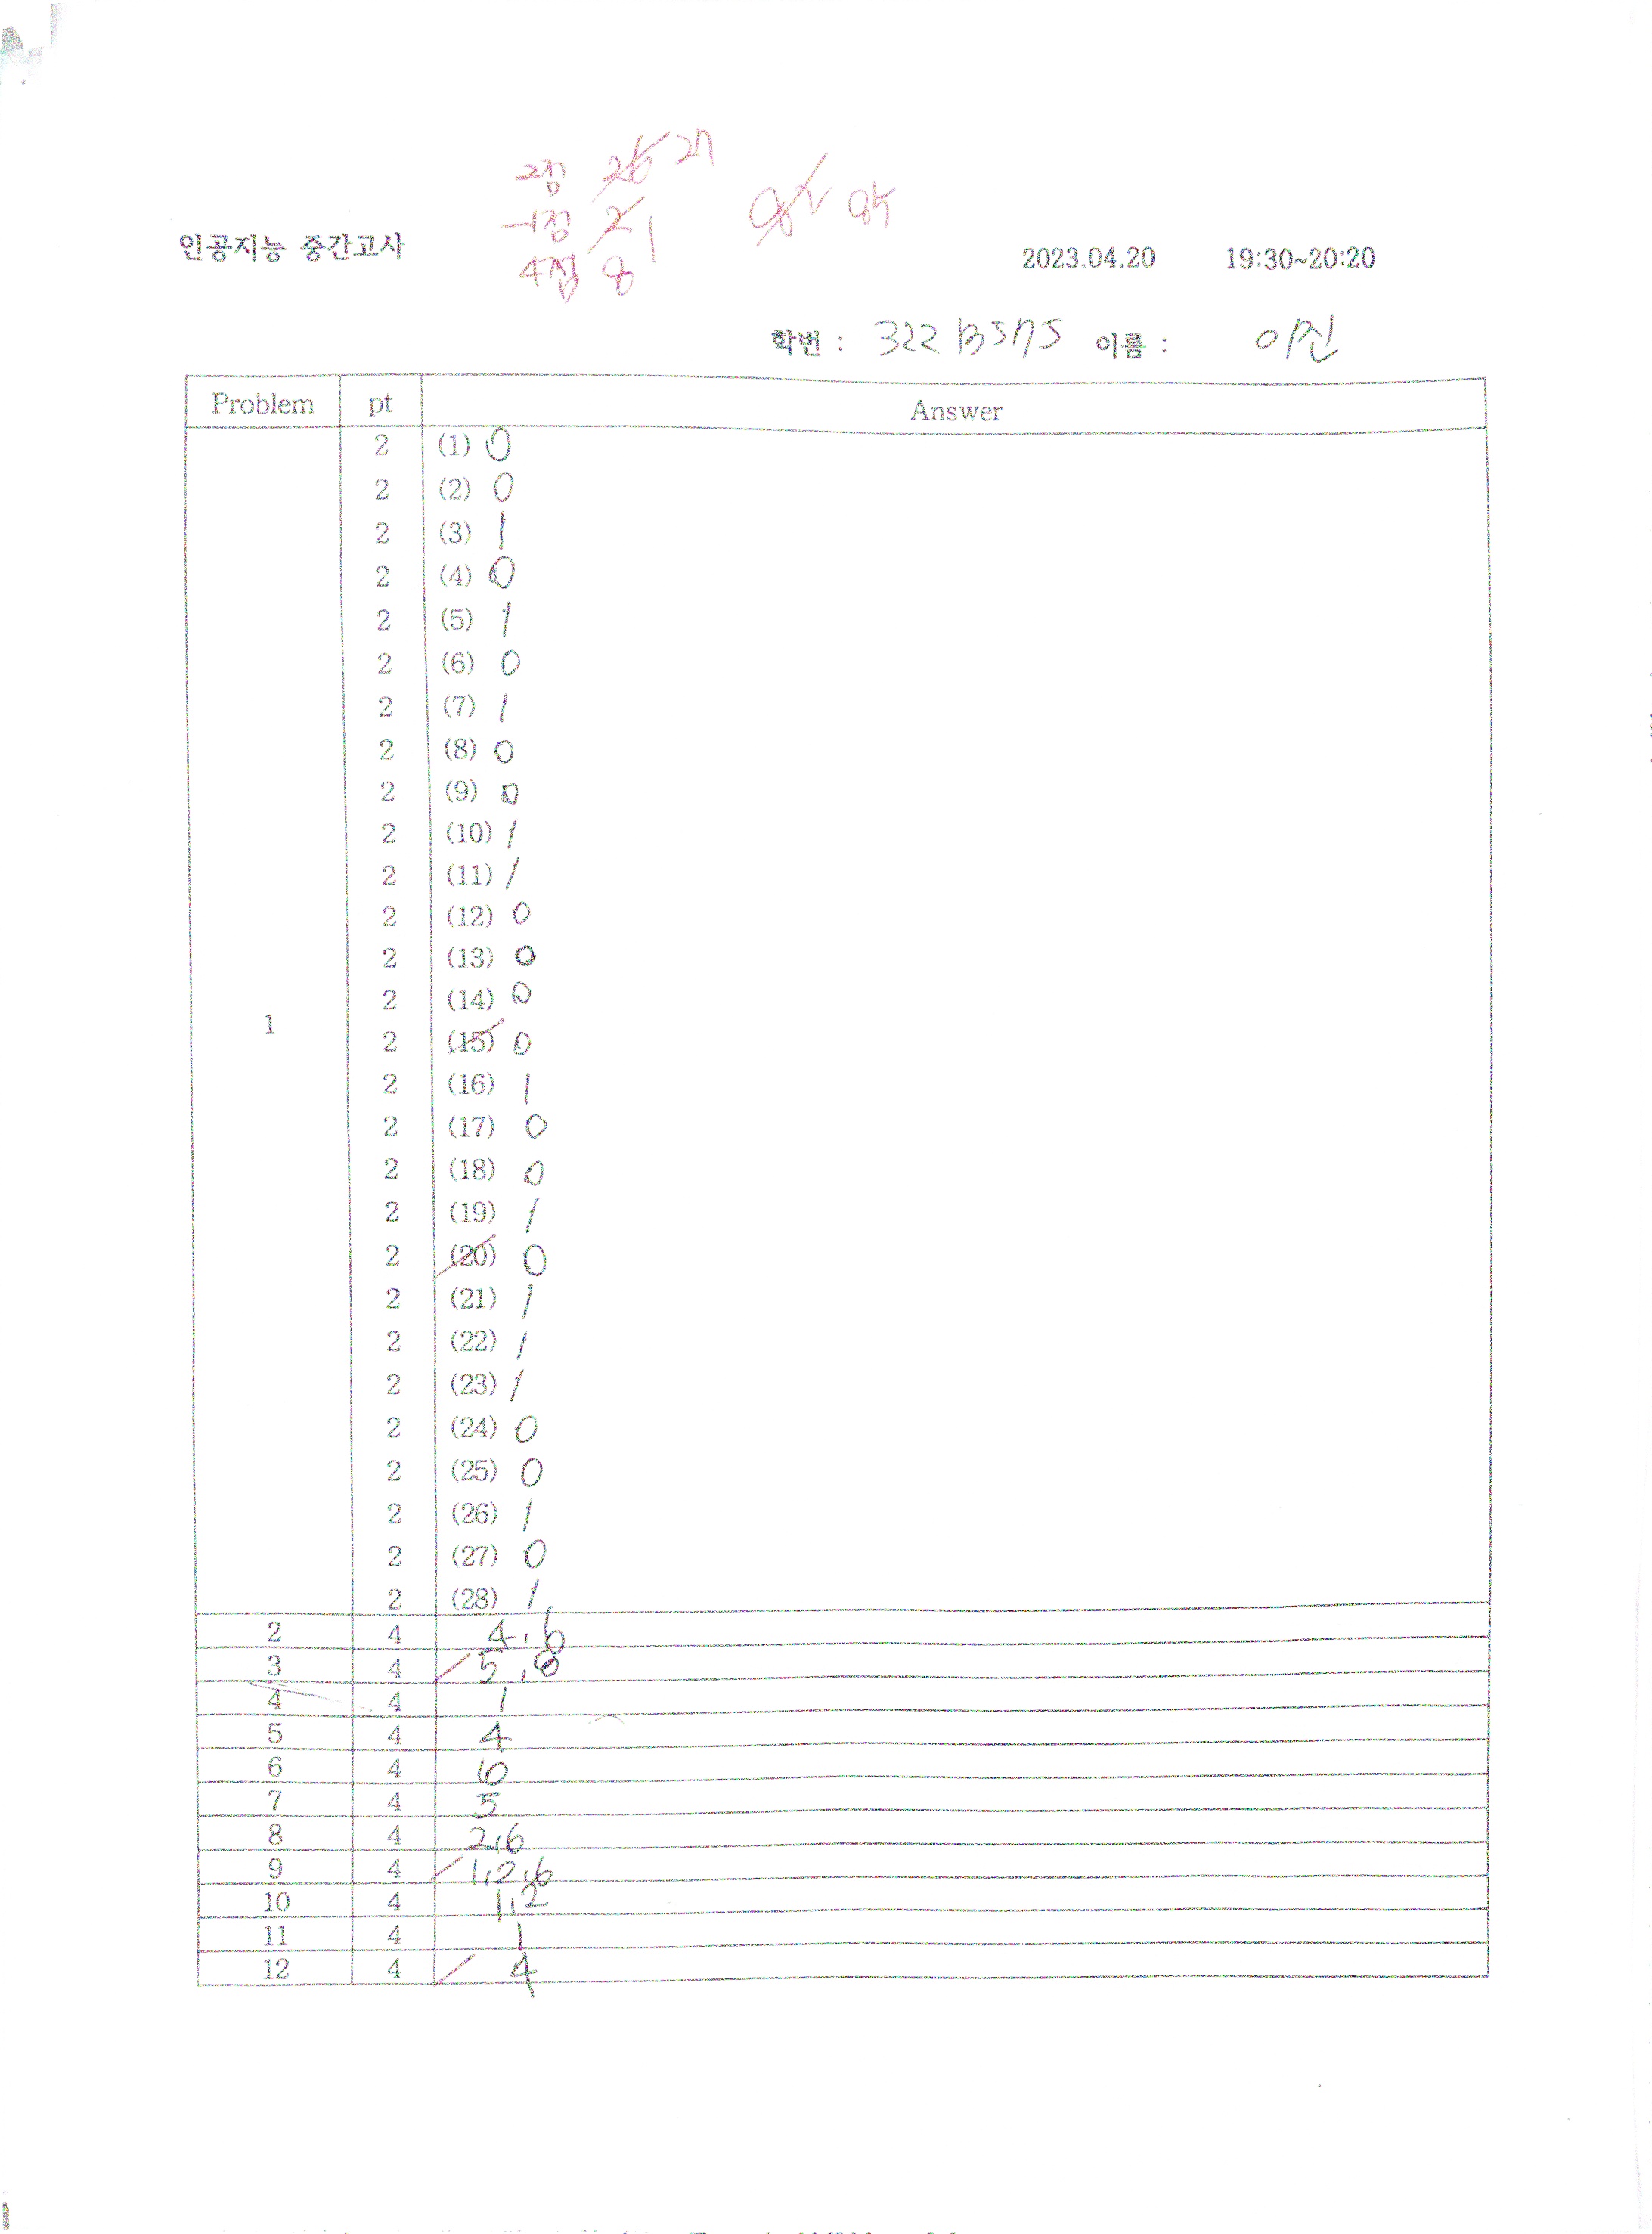 2점 26 27
-1점 2 1 82 85
4점 8
인공지능 중간고사 2023.04.20 19:30~20:20
학번 : 이름 : 이진
Problem pt Answer
2 (1) 0
2 (2) 0
2 (3) 1
2 (4) 0
2 (5) 1
2 (6) 0
2 (7) 1
2 (8) 0
2 (9) 0
2 (10) 1
2 (11) 1
2 (12) 0
2 (13) 0
2 (14) 0
1
2 (15) 0
2 (16) 1
2 (17) 0
2 (18) 0
2 (19) 1
2 (20) 0
2 (21) 1
2 (22) 1
2 (23) 1
2 (24) 0
2 (25) 0
2 (26) 1
2 (27) 0
2 (28) 1
2 4 4, 6
3 4 5, 8
4 4 1
5 4 4
6 4 6
7 4 5
8 4 2,6
9 4 1,2,6
10 4 1,2
11 4 1
12 4 4